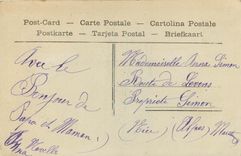 Post-Card — Carte Postale — Cartolina Postale
Postkarte — Tarjeta Postal — Briefkaart
Avec le
Bonjour de
Papa et Maman
Mademoiselle Simon
Route de
Propriété Simon
Nice (Alpes